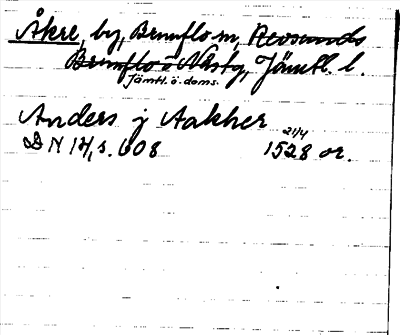 Åkre, by, Brunflo sn, Revsunds
Brunflo o Näs tg, Jämtl. l.
Jämtl. ö. doms.
Anders j Aakher
21/4
DN 12, s. 608 1528 or.